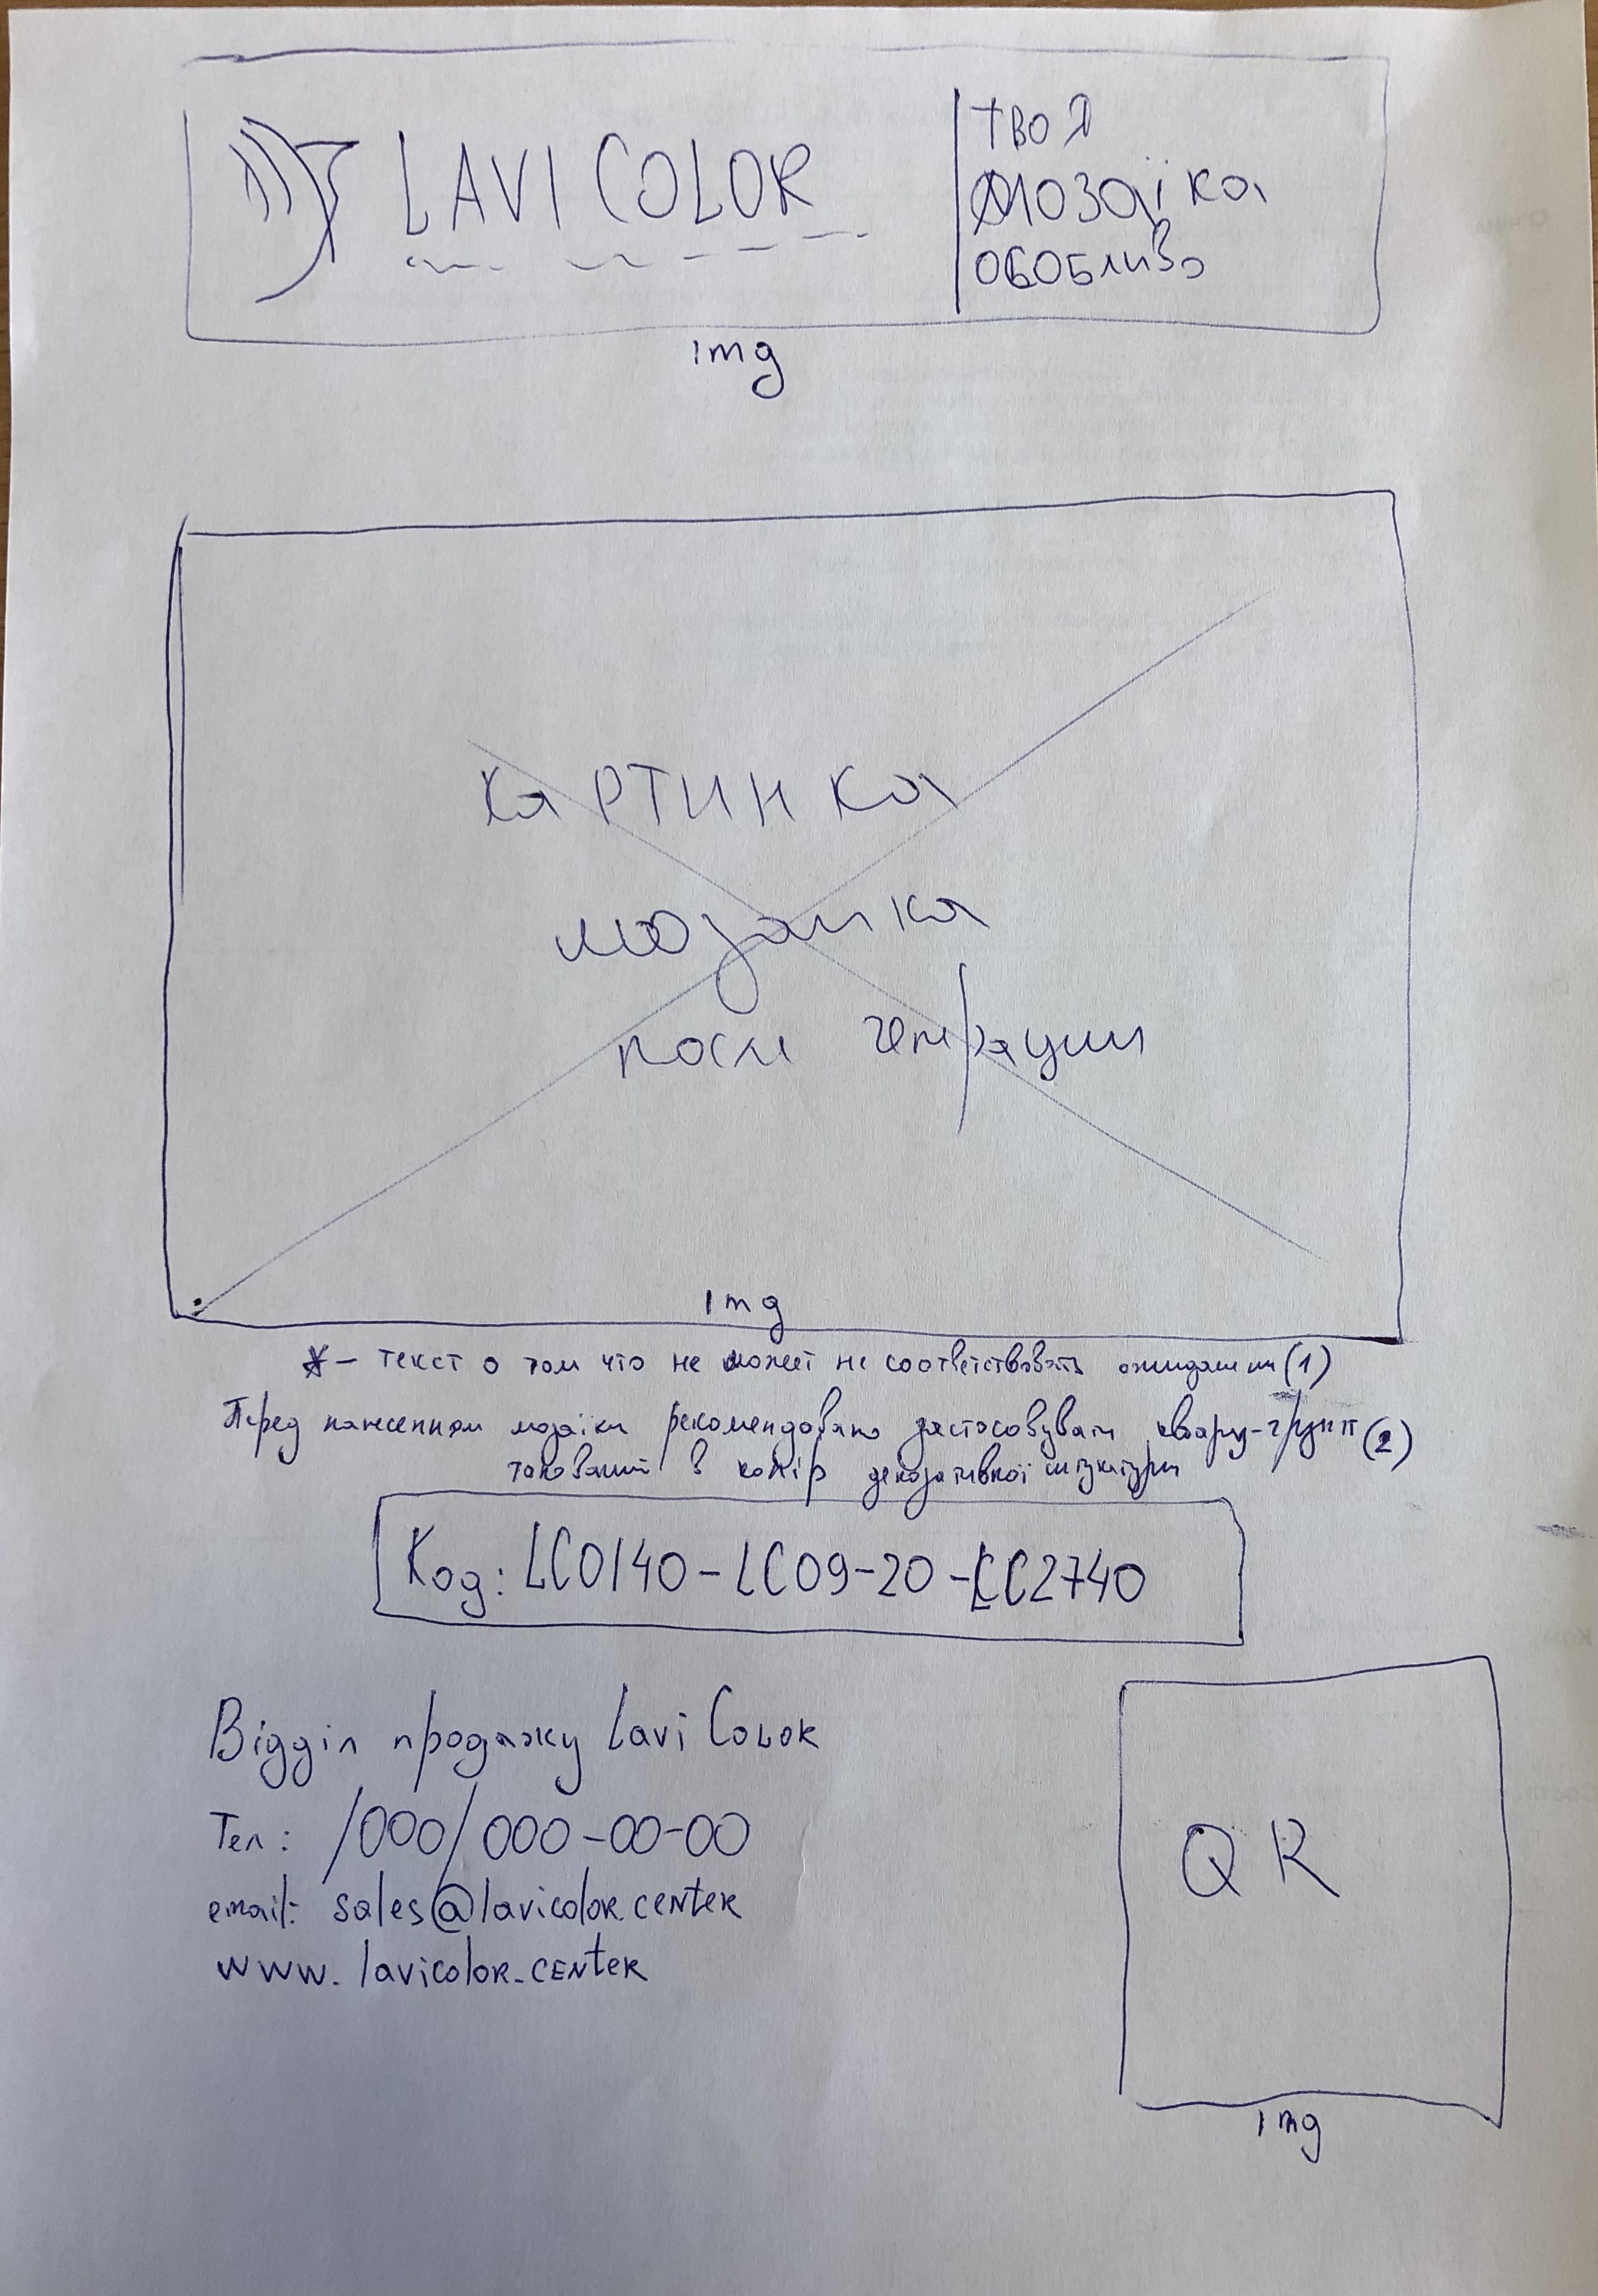 LAVI COLOR
ТВОЯ
МОЗаїка
ОСОБлиВо
img
КаРТИНКа
мозаика
после генерации
img
* - текст о том что не может не соответствовать ожиданиям (1)
Перед нанесенням мозаїки рекомендовано застосовувати кварц-грунт (2)
тонований в колір декоративної штукатурки
Код: LC0140-LC09-20-LC2740
Відділ продажу Lavi Color
QR
Тел: /000/ 000-00-00
email: sales@lavicolor.center
www.lavicolor.center
img